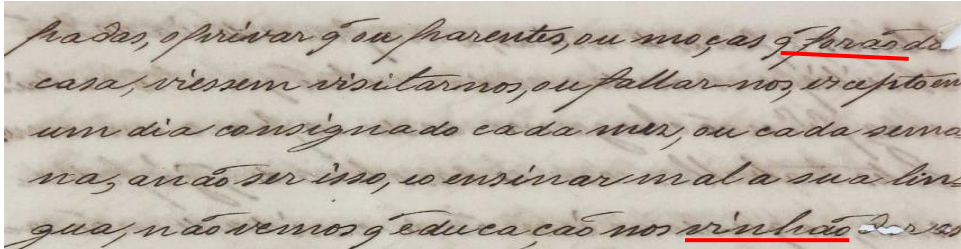 padas, o privar q̃ ou parentes, ou moças q̃ forão da
casa, viessem visitar nos, ou fallar-nos, excepto em
um dia consignado cada mez, ou cada sema
na, a não ser isso, e o ensinar mal a sua lin-
gua, não vemos q̃ educação nos vinhão dar as